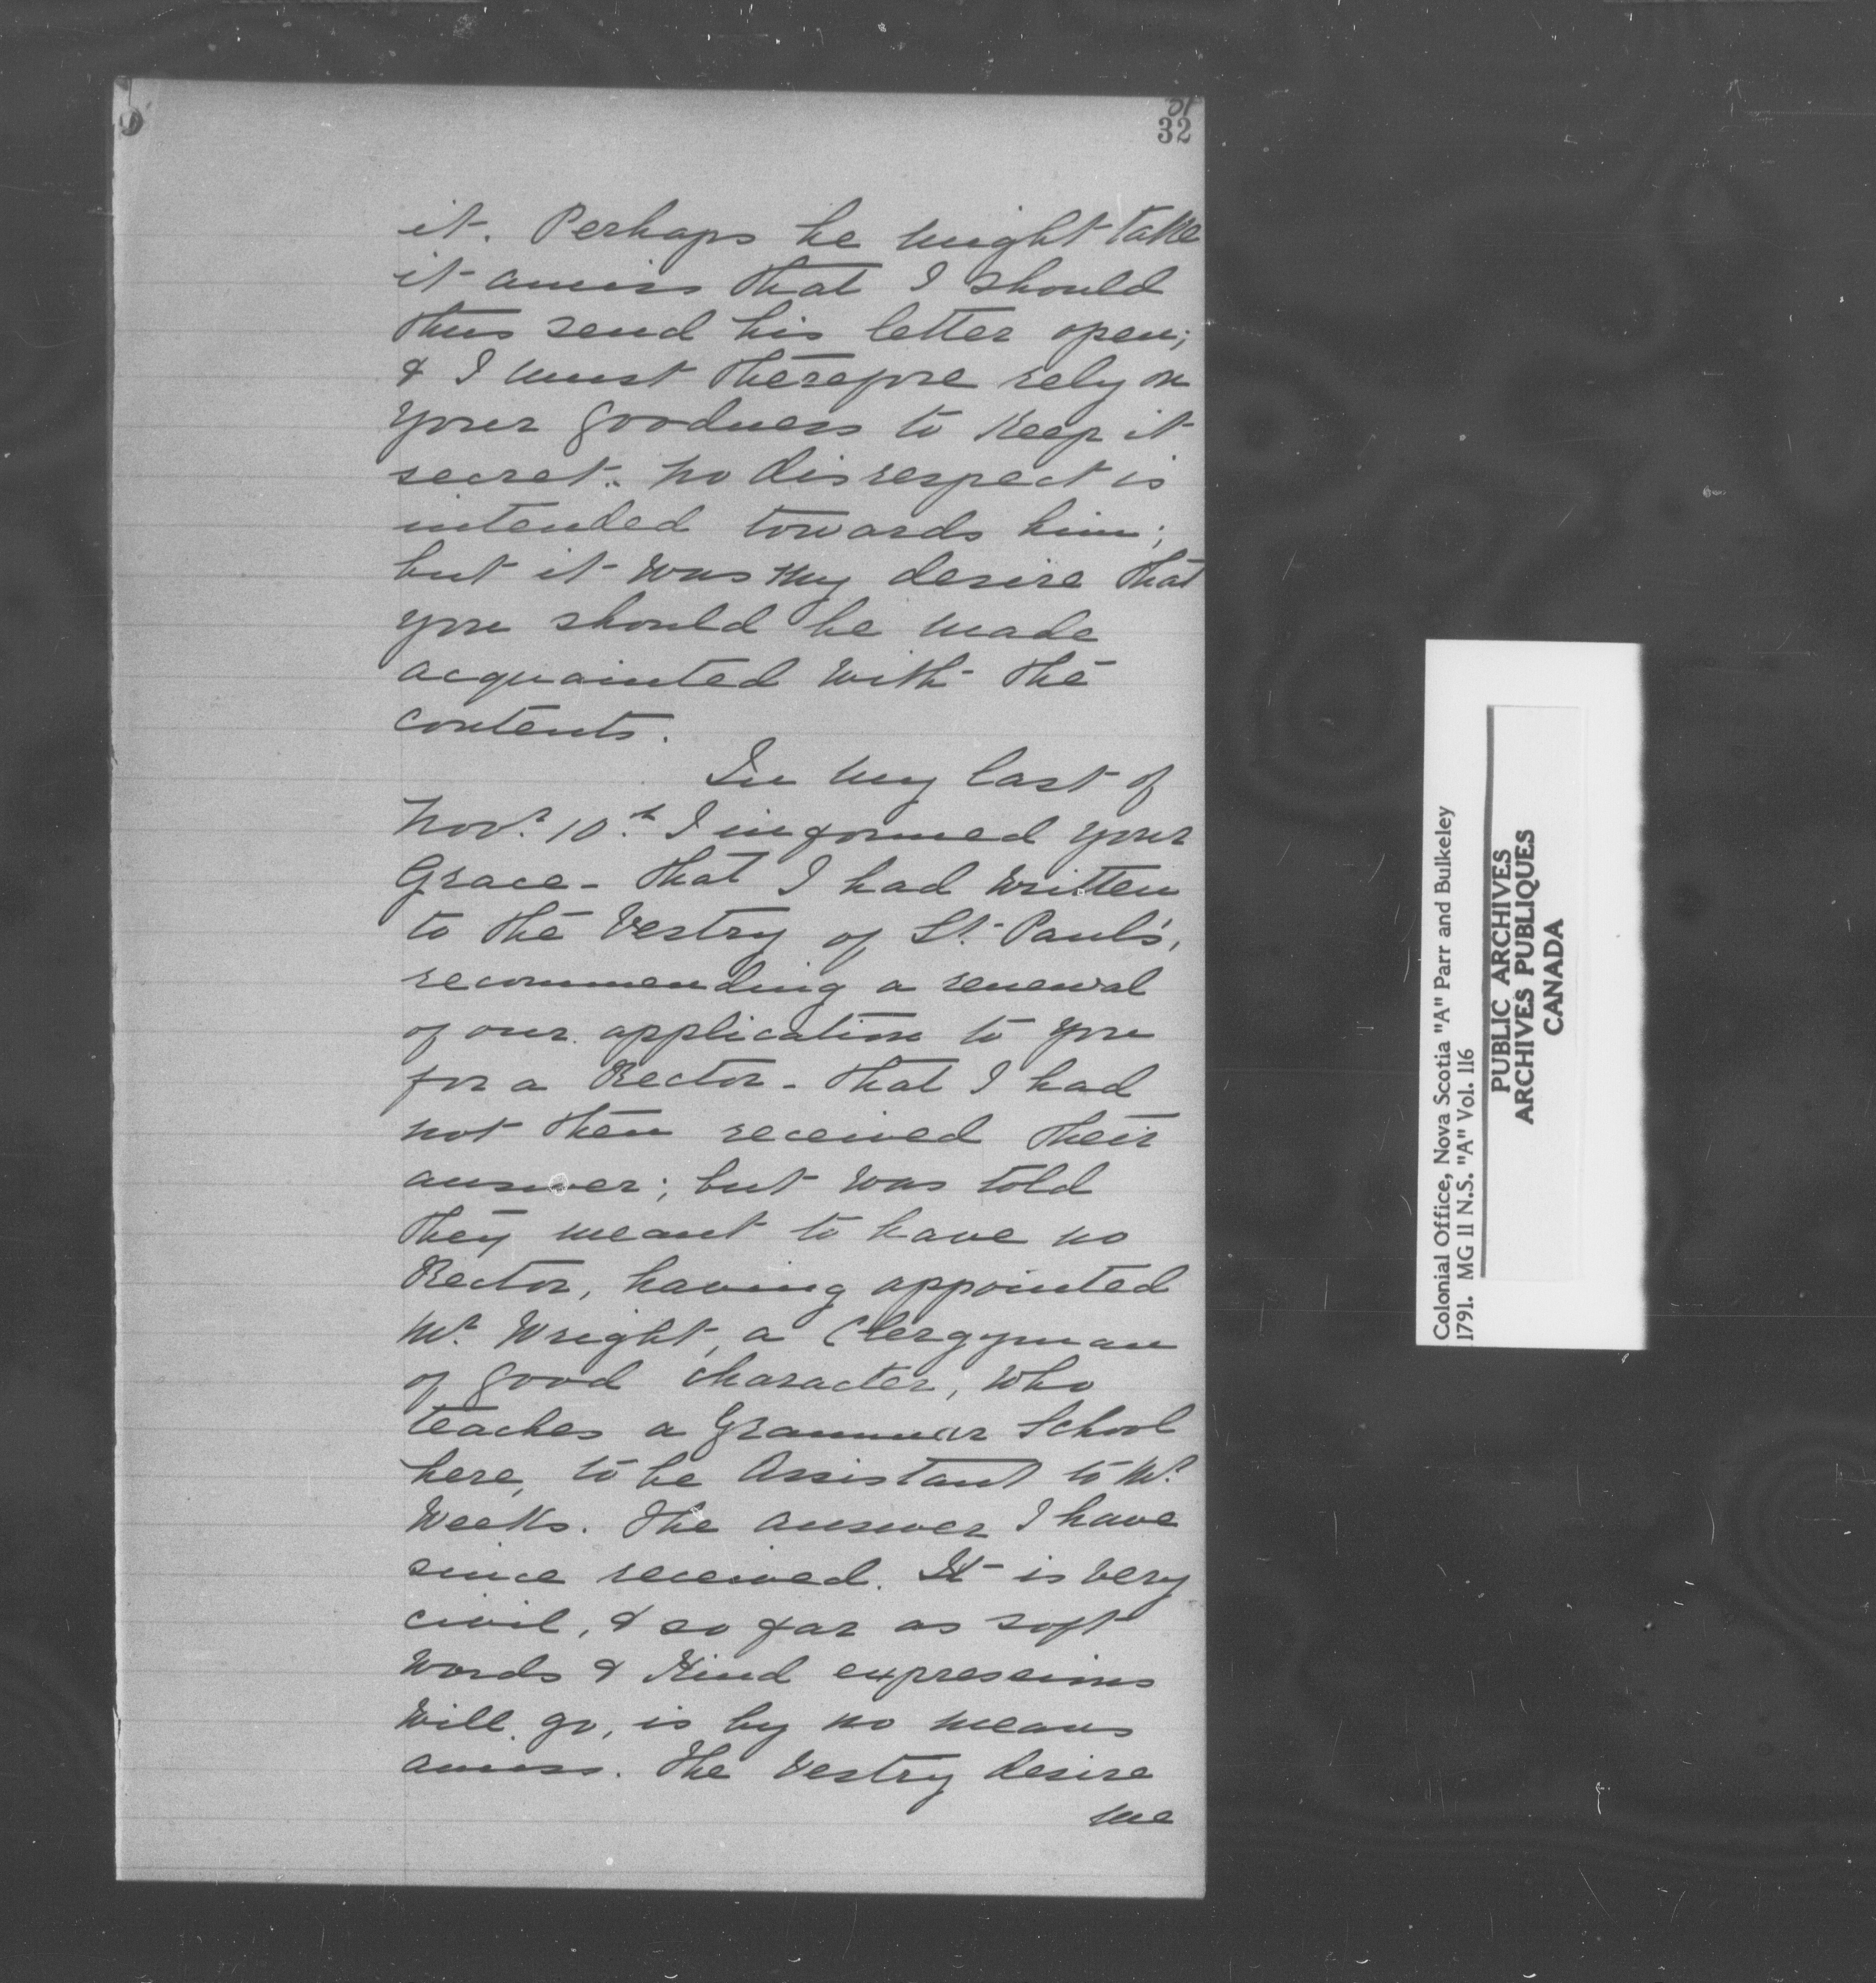 31
32
it. Perhaps he might take
it amiss that I should
thus send his letter open;
& I must therefore rely on
your goodness to keep it
secret. no disrespect is
intended towards him;
but it was my desire that
you should be made
acquainted with the
contents.
In my last of
Novr. 10.th I informed your
Grace - that I had written
to the Vestry of St. Paul's,
recommending a renewal
of our application to you
for a Rector - that I had
not then received their
answer; but was told
they meant to have no
Rector, having appointed
Mr. Wright, a Clergyman
of good character, who
teaches a Grammar School
here, to be Assistant to Mr.
Weeks. The answer I have
since received. It is very
civil, & so far as soft
words & kind expressions
will go, is by no means
amiss. The Vestry desire
me
Colonial Office, Nova Scotia "A" Parr and Bulkeley
1791. MG 11 N.S. "A" Vol. 116
PUBLIC ARCHIVES
ARCHIVES PUBLIQUES
CANADA